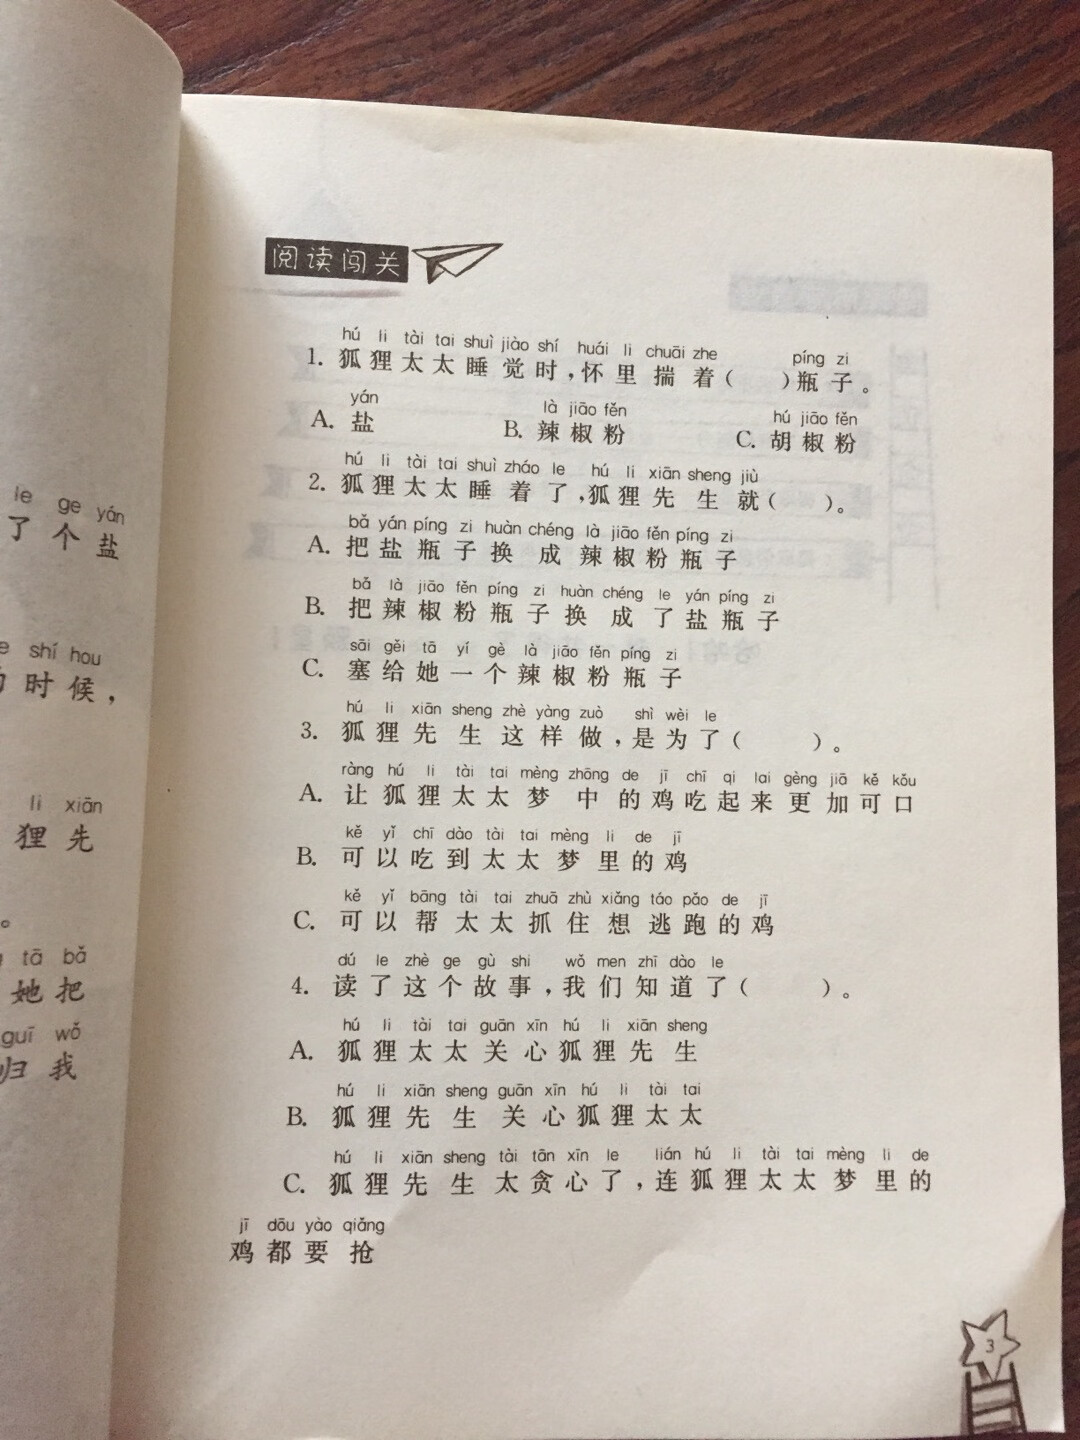 le ge yán
了个盐
shí hou
时候，
li xiān
狸先
。
tā bǎ
她把
guī wǒ
归我
阅读闯关
hú li tài tai shuì jiào shí huái li chuāi zhe píng zi
1. 狐狸太太睡觉时，怀里揣着（ ）瓶子。
yán là jiāo fěn hú jiāo fěn
A. 盐 B. 辣椒粉 C. 胡椒粉
hú li tài tai shuì zháo le hú li xiān sheng jiù
2. 狐狸太太睡着了，狐狸先生就（ ）。
bǎ yán píng zi huàn chéng là jiāo fěn píng zi
A. 把盐瓶子换成辣椒粉瓶子
bǎ là jiāo fěn píng zi huàn chéng le yán píng zi
B. 把辣椒粉瓶子换成了盐瓶子
sāi gěi tā yí gè là jiāo fěn píng zi
C. 塞给她一个辣椒粉瓶子
hú li xiān sheng zhè yàng zuò shì wèi le
3. 狐狸先生这样做，是为了（ ）。
ràng hú li tài tai mèng zhōng de jī chī qi lai gèng jiā kě kǒu
A. 让狐狸太太梦中的鸡吃起来更加可口
kě yǐ chī dào tài tai mèng li de jī
B. 可以吃到太太梦里的鸡
kě yǐ bāng tài tai zhuā zhù xiǎng táo pǎo de jī
C. 可以帮太太抓住想逃跑的鸡
dú le zhè ge gù shi wǒ men zhī dào le
4. 读了这个故事，我们知道了（ ）。
hú li tài tai guān xīn hú li xiān sheng
A. 狐狸太太关心狐狸先生
hú li xiān sheng guān xīn hú li tài tai
B. 狐狸先生关心狐狸太太
hú li xiān sheng tài tān xīn le lián hú li tài tai mèng li de
C. 狐狸先生太贪心了，连狐狸太太梦里的
jī dōu yào qiǎng
鸡都要抢
3